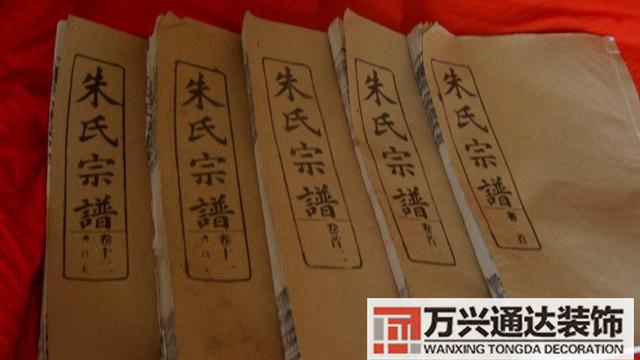 朱氏宗譜
卷十二
朱氏宗譜
卷十一
朱氏宗譜
卷首二
朱氏宗譜
卷首一
朱氏宗譜
卷首
万兴通达装饰
WANXING TONGDA DECORATION